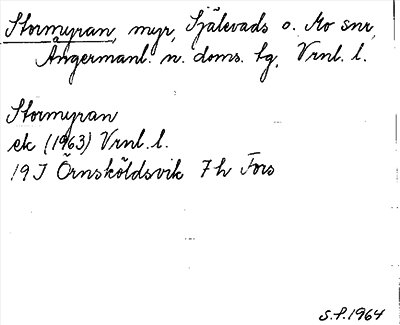 Stormyran, myr, Själevads o. Mo snr,
Ångermanl. n. doms. tg, Vrnl. l.
Stormyran
ek (1963) Vrnl. l.
19J Örnsköldsvik 7h Fors
S.f. 1964